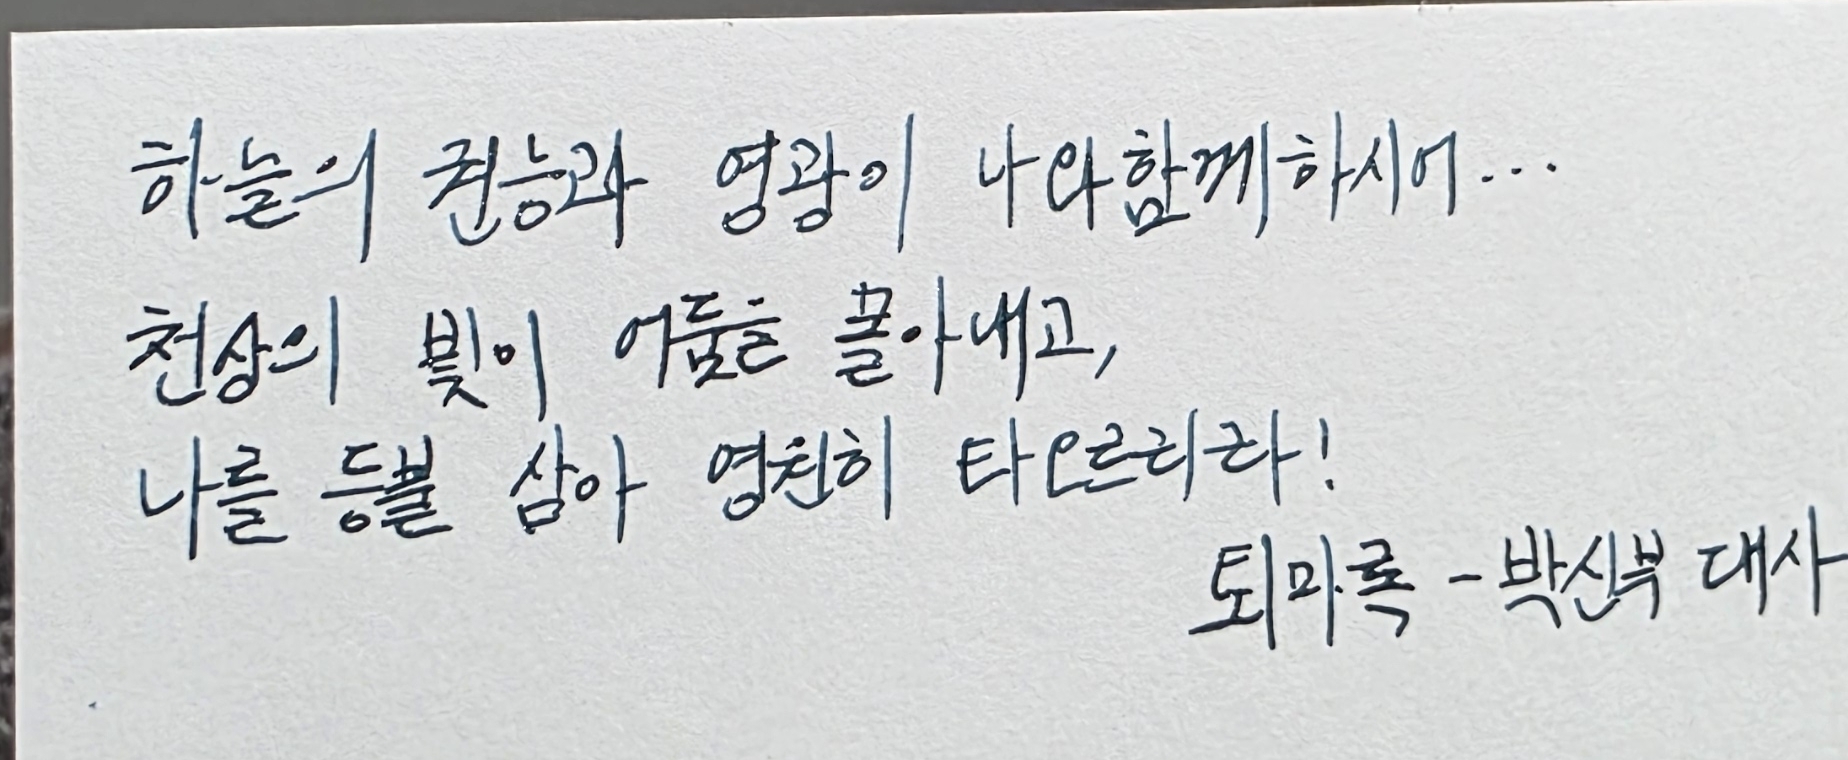 하늘의 권능과 영광이 나와 함께 하시어...
천상의 빛이 어둠을 몰아내고,
나를 등불 삼아 영원히 타오르리라!
퇴마록 - 박신부 대사